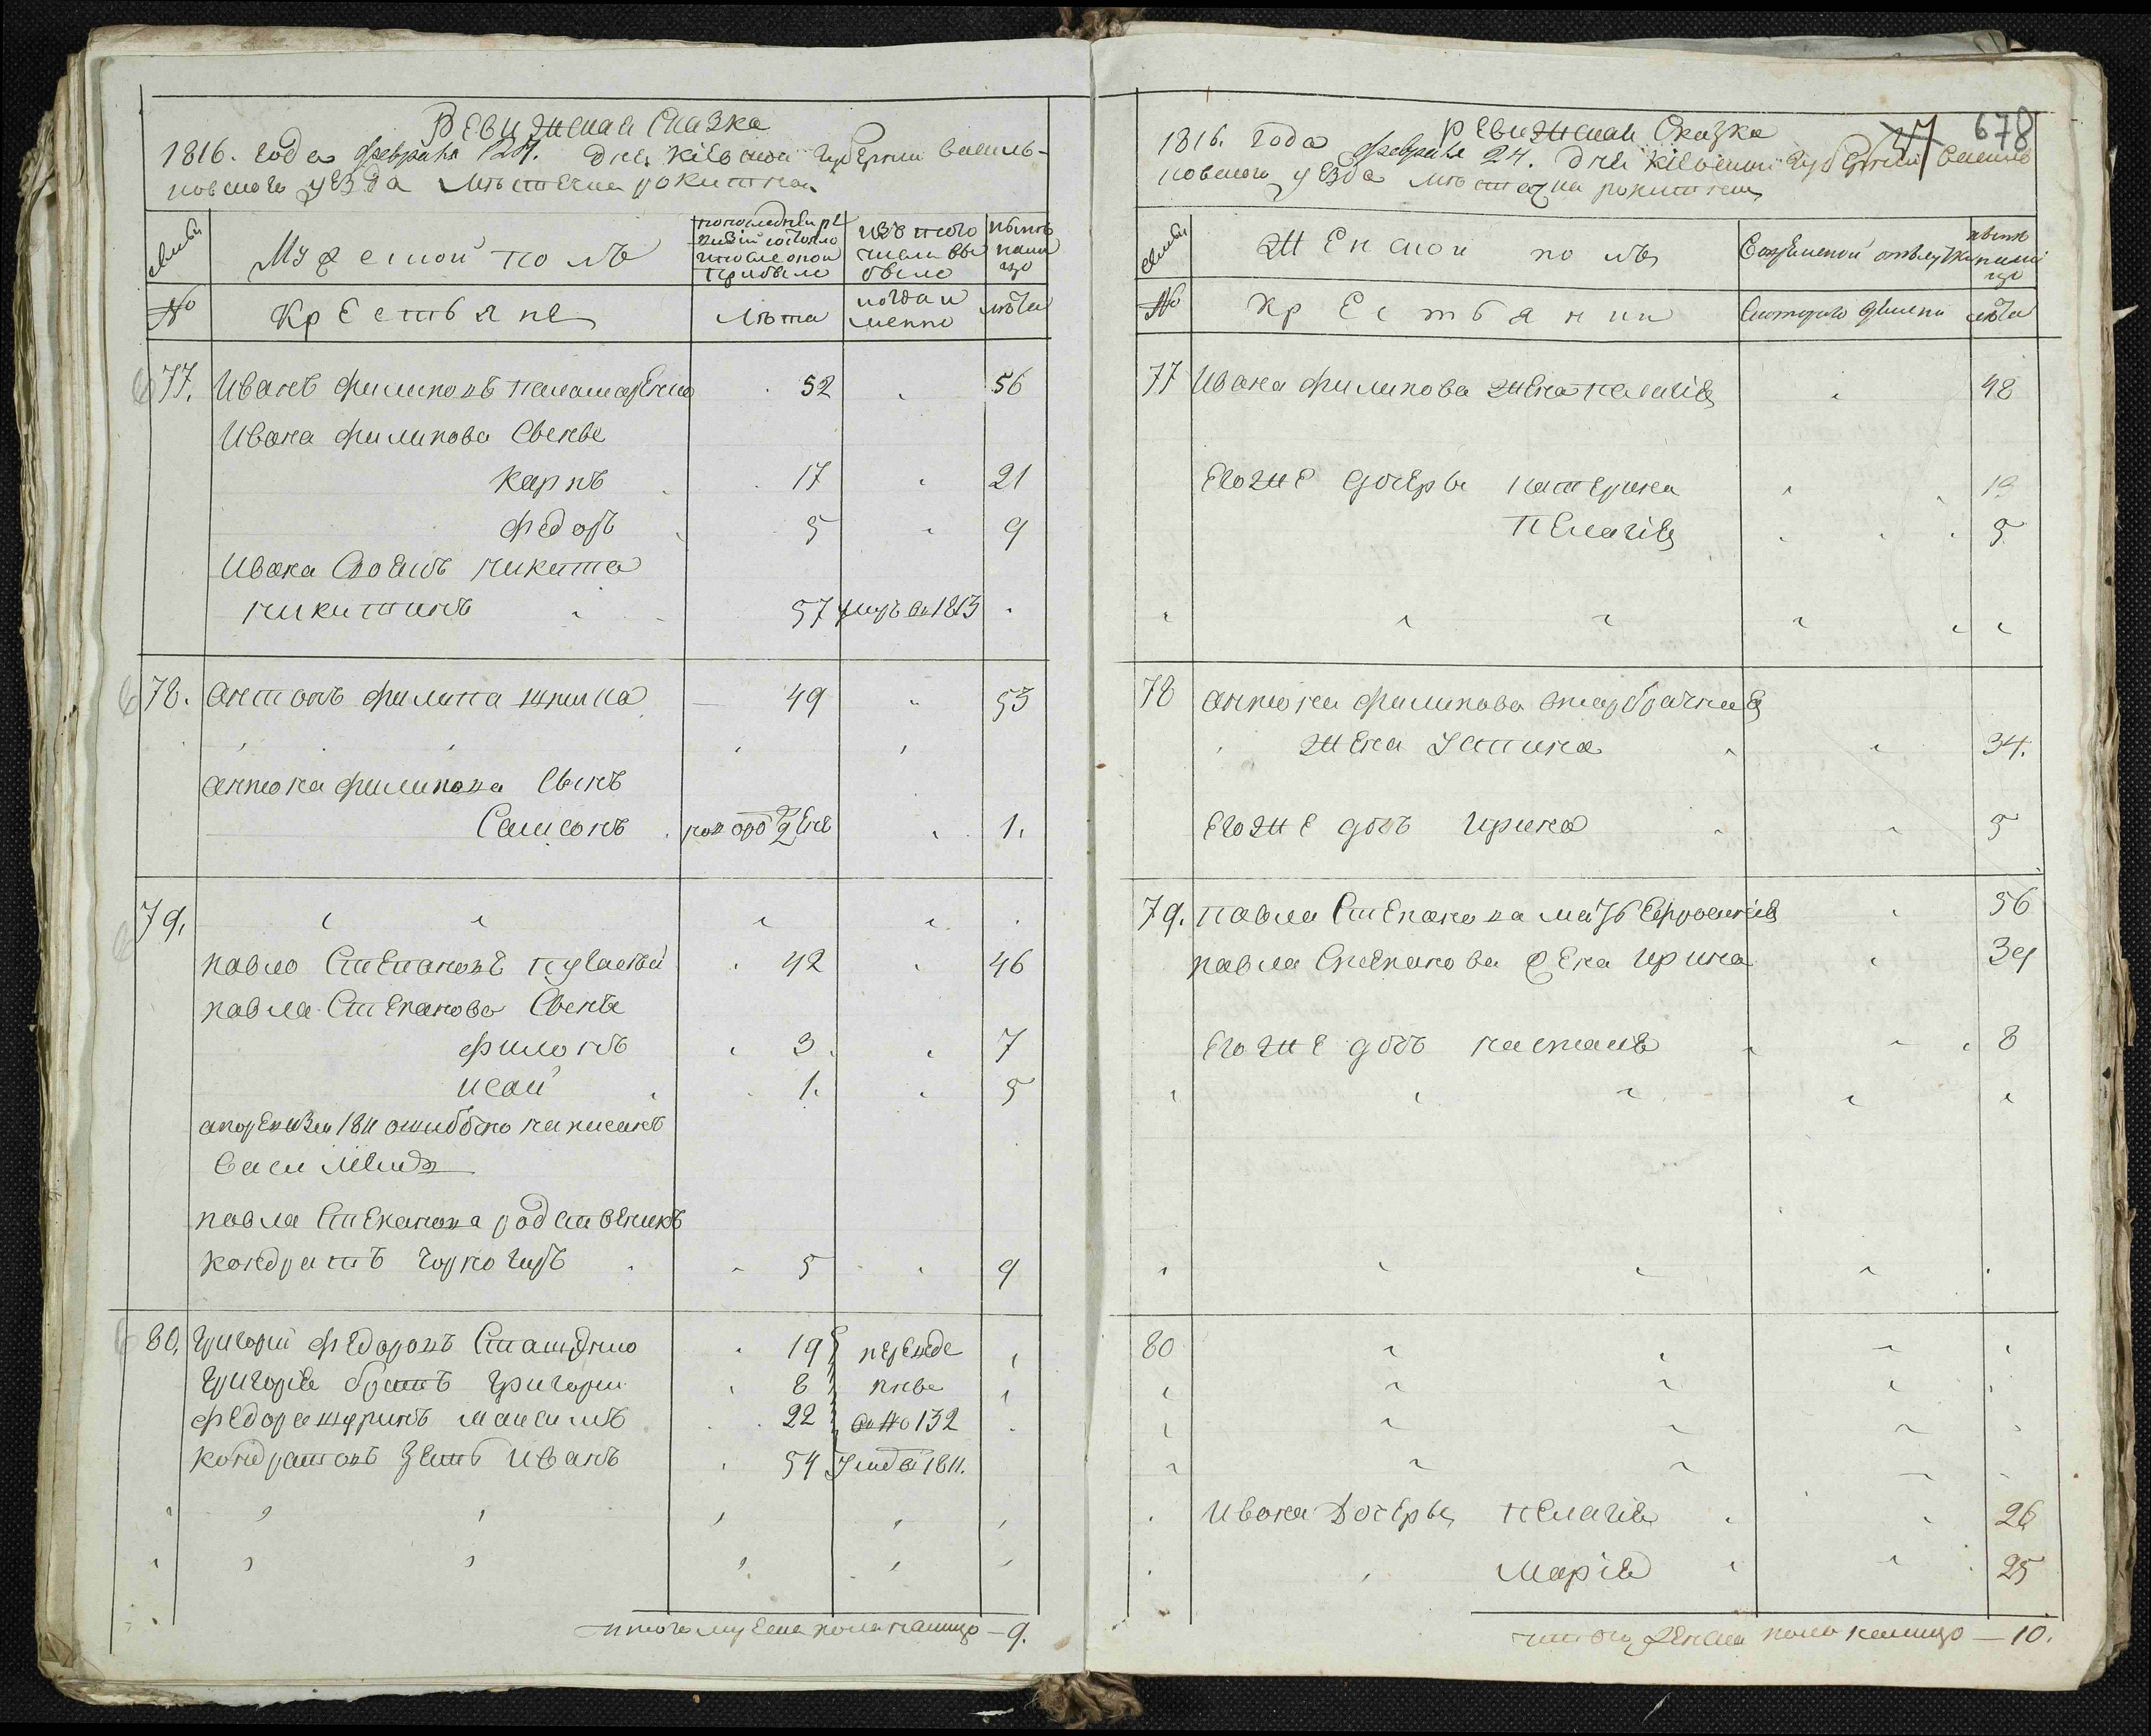 Ревижская Сказка
1816. года февраля 24. дня Кіевской Губернии василь-
ковского уезда Местечка рокитна
семьи
Мужеской полъ
по последней ре
визіи состояло
и после оной
прибыло
изъ того
числа вы
было
ныне
на ли
цо
№
Крестьяне
Лета
когда и
менно
лета
77. Иванъ филиповъ 52 56
Ивана филипова Сынове
Карпъ 17 21
федоръ 5 9
Ивана Своякъ никита
никитинъ 57 умръ в 1813
78. антонъ филипа шкипа 49 53
антона филипова Сынъ
Самсонъ новорожденъ 1.
79.
павло Степановъ 42 46
павла Степанова Сынове
филонъ 3 7
исай 1. 5
а по ревизіи 1811 ошибочно написанъ
василемъ
павла Степанова родственикъ
кондратъ чорногуръ 5 9
80. Григорій федоровъ 19 переведе
Григорія братъ Григорій 8 ны в
федора шуринъ максимъ 22 в № 132
кондратовъ зять иванъ 54 умръ в 1811.
итого мужеска пола налицо — 9.
47 678
Ревижская Сказка
1816. года февраля 24. дня Кіевской Губерніи василь
ковского уезда местечка рокитна
семьи
Женской полъ
Во временной отлучки
ныне
на ли
цо
№
Крестьянки
Скоторого времени
лета
77 Ивана филипова жена пелагія 48
Егоже дочеры катерина 13
Пелагія 5
78 антона филипова второбрачная
жена Устина 34.
Егоже дочъ Ирина 5
79. павла Степанова мать Ефросинія 56
павла Степанова жена Ирина 39
Егоже дочъ настасия 8
80
Ивана Дочеры пелагія 26
Марія 25
итого женска пола налицо — 10.